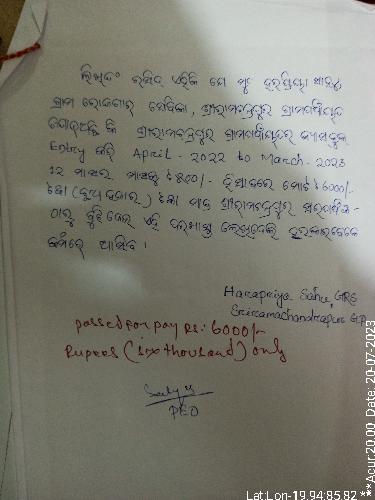 ଲିଖିତଂ ରସିଦ୍ ଏହିକି ଯେ ମୁଁ ହରପ୍ରିୟା ସାହୁ,
ଗ୍ରାମ ରୋଜଗାର ସେବିକା, ଶ୍ରୀରାମଚନ୍ଦ୍ରପୁର ଗ୍ରାମପଞ୍ଚାୟତ
ଶ୍ରୀରାମଚନ୍ଦ୍ରପୁର ଗ୍ରାମପଞ୍ଚାୟତର
Entry କରି April - 2022 to March - 2023
12 ମାସର ମାସକୁ ₹ 500/- ହିସାବରେ ମୋଟ ₹ 6000/-
ଟଙ୍କା (ଛଅ ହଜାର) ଟଙ୍କା ମାତ୍ର ଶ୍ରୀରାମଚନ୍ଦ୍ରପୁର ସରପଞ୍ଚଙ୍କ-
ଠାରୁ ବୁଝିନେଇ ଏହି ଦରକାରବେଳେ
କାମରେ ଆସିବ ।
Harapriya Sahu, GRS
Sriramachandrapur G.P
passed for pay Rs: 6000/-
Rupees (six thousand) only
PEO
Lat:Lon-19.94:85.82 ***Acur:20.00, Date, 20-07-2023